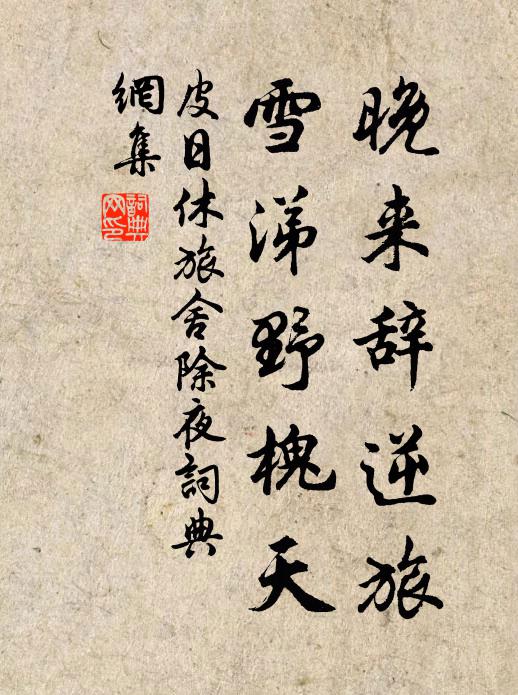 晚来辞逆旅
雪涕野槐天
皮日休旅舍除夜詞典
網集
詞典
网印